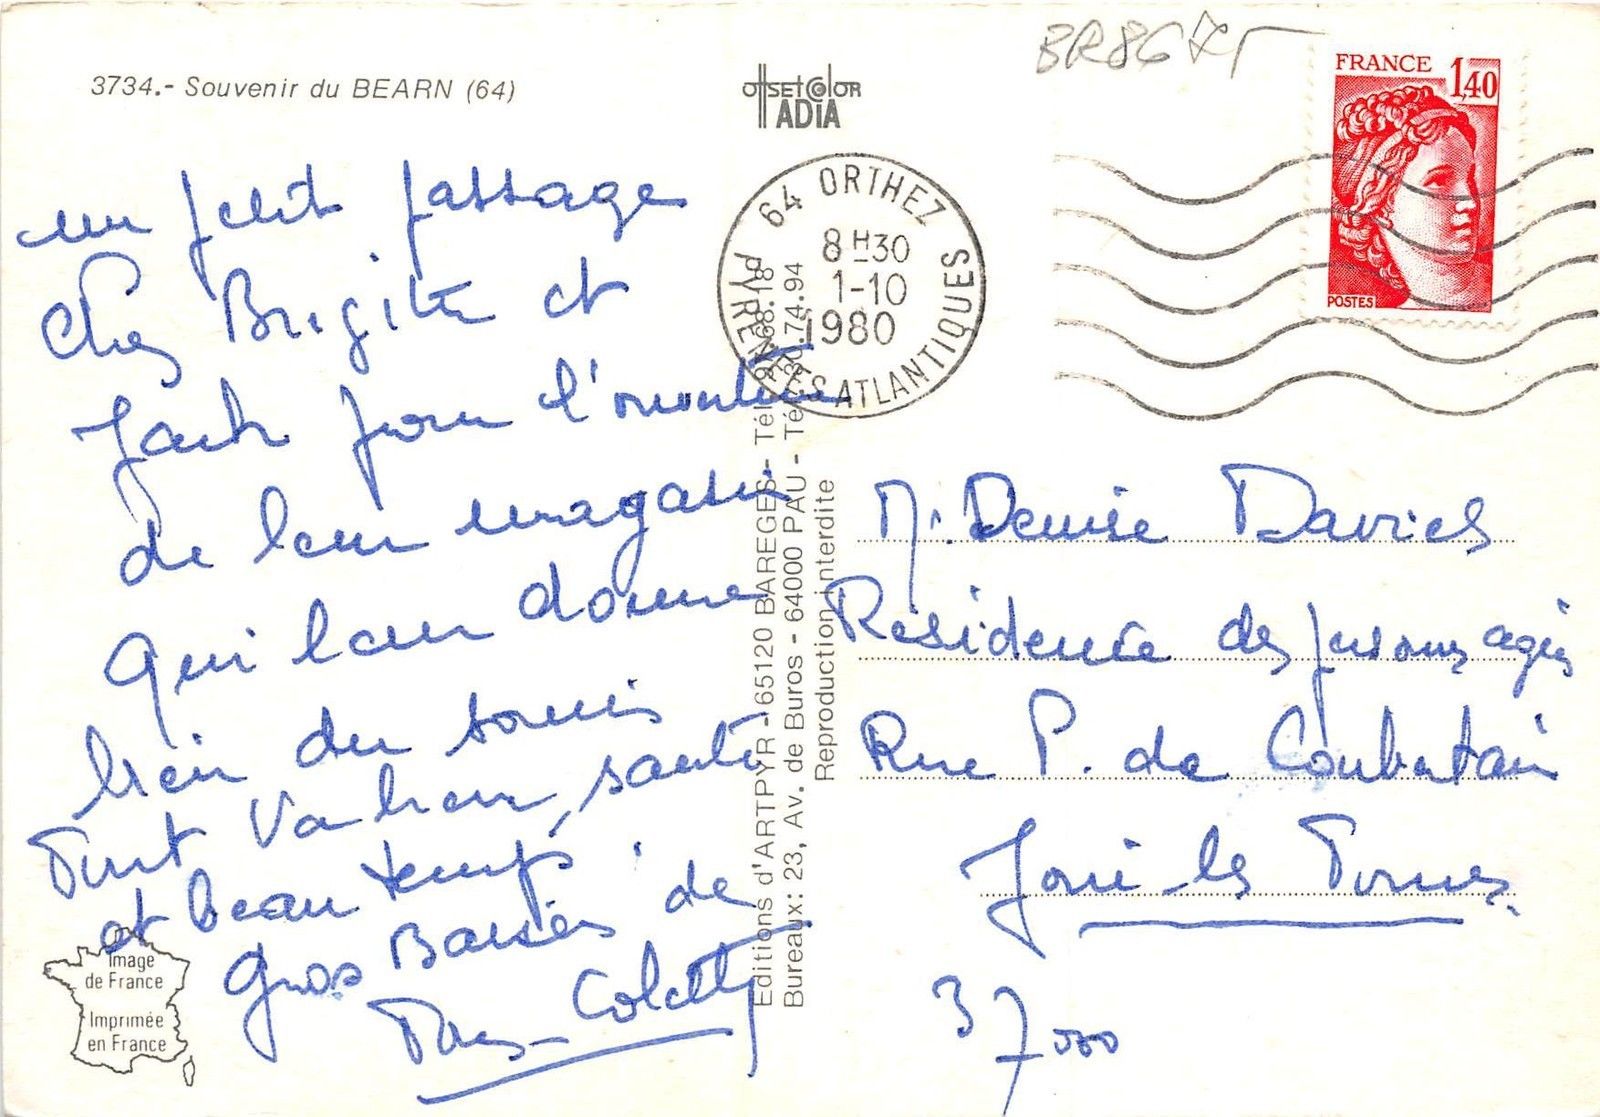 3734.- Souvenir du BEARN (64)
offsetcolor
ADIA
BR8675
FRANCE 1,40
POSTES
64 ORTHEZ
PYRENEES ATLANTIQUES
8H30
1-10
1980
un petit passage
chez Brigitte et
Jack pour l'ouverture
de leur magasin
qui leur donne
bien du soucis
Tout va bien, santé
et beau temps.
Gros Baisers de
Colette
Editions d'ARTPYR - 65120 BAREGES - Tél. 92.68.18
Bureaux: 23, Av. de Buros - 64000 PAU - Tél. 30.74.94
Reproduction interdite
M. Denise Davies
Résidence des personnes agées
Rue P. de Coubertain
Joué les Tours
37000
Image
de France
Imprimée
en France